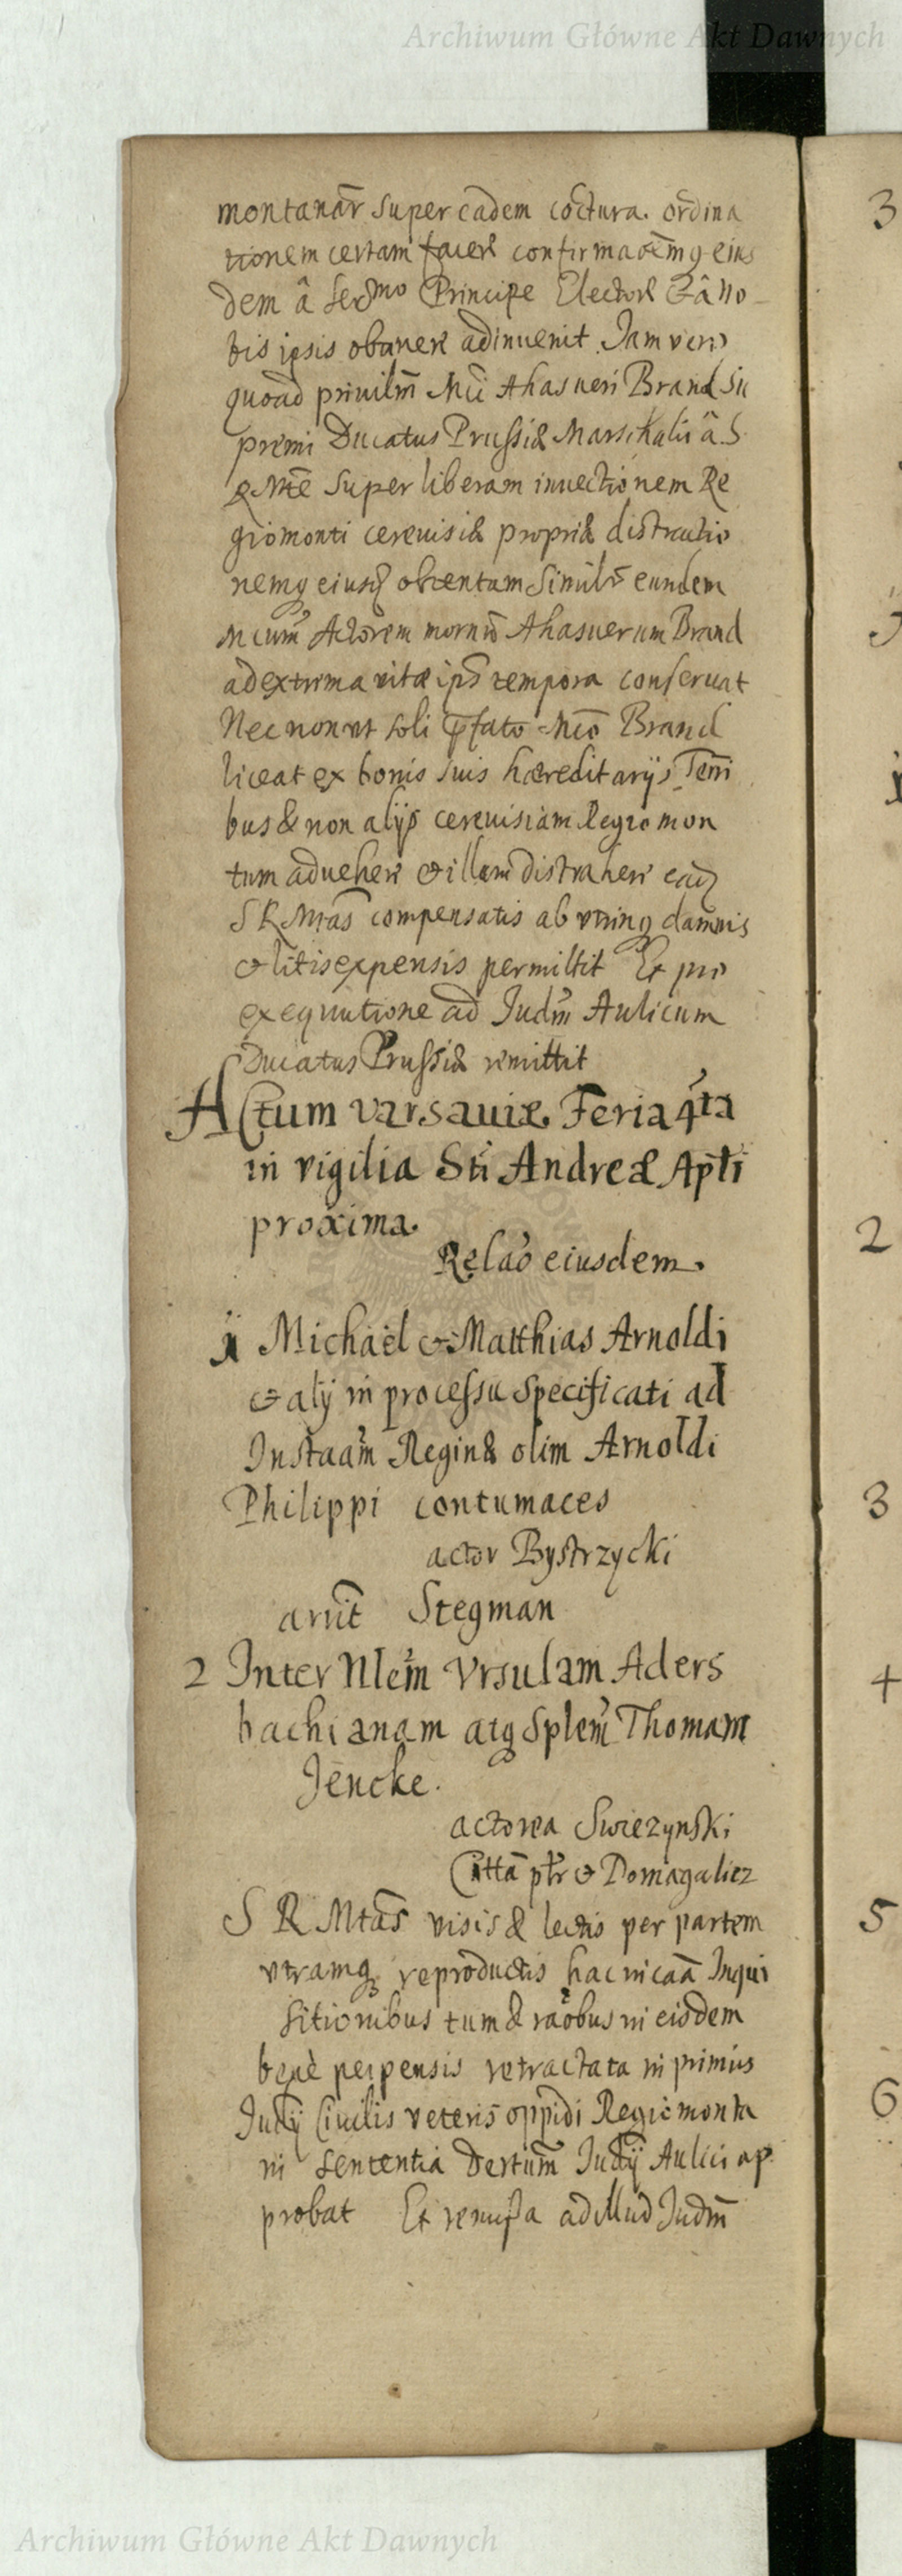 Archiwum Główne Akt Dawnych
montanar̃ super eadem coctura. ordina
tionem certam facere confirmaõemq eius
dem â Ser͂mo Principe Electore & â no-
bis ipsis obtinere adinuenit. Jam vero
quoad priuilm̃ Mci Ahasueri Brand Su
premi Ducatus Prussiæ Marschalii â S.
R. Mte super liberam inuectionem Re
giomonti cereuisiæ propriæ distractio
nemq eiusq obtentum simul eundem
Mcum Actorem Ahasuerum Brand
ad extrema vitæ ips tempora conseruat
Nec non vt soli pfato Mco Brand
liceat ex bonis suis hæreditarijs
bus & non alijs cereuisiam Regiomon
tum aduehere & illam distrahere eaq
S R Mtas compensatis ab vtrinq damnis
& litis expensis permittit Et pro
exequutione ad Judm̃ Aulicum
Ducatus Prussiæ remittit
Actum Varsauiæ Feria 4ta
in vigilia Sti Andreæ Apti
proxima.
Relaõ eiusdem.
1 Michaël & Matthias Arnoldi
& alij in processu specificati ad
Instaam̃ Reginæ olim Arnoldi
Philippi contumaces
actor Bystrzycki
arrit̃ Stegman
2 Inter Nlem̃ Vrsulam Aders
bachianam atq Splem̃ Thomam
Jencke.
actorea Swiezynski
Citta ptr & Domagalicz
S R Mtas visis & lectis per partem
vtramq reproductis hac in caã Inqui
sitionibus tum & raõbus in eisdem
benè perpensis retractata in primis
Judij Ciuilis veteris oppidi Regiomonta
ni sententia Judij Aulici ap
probat Et remissa ad illud Judm̃
3
2
3
4
5
6
Archiwum Główne Akt Dawnych